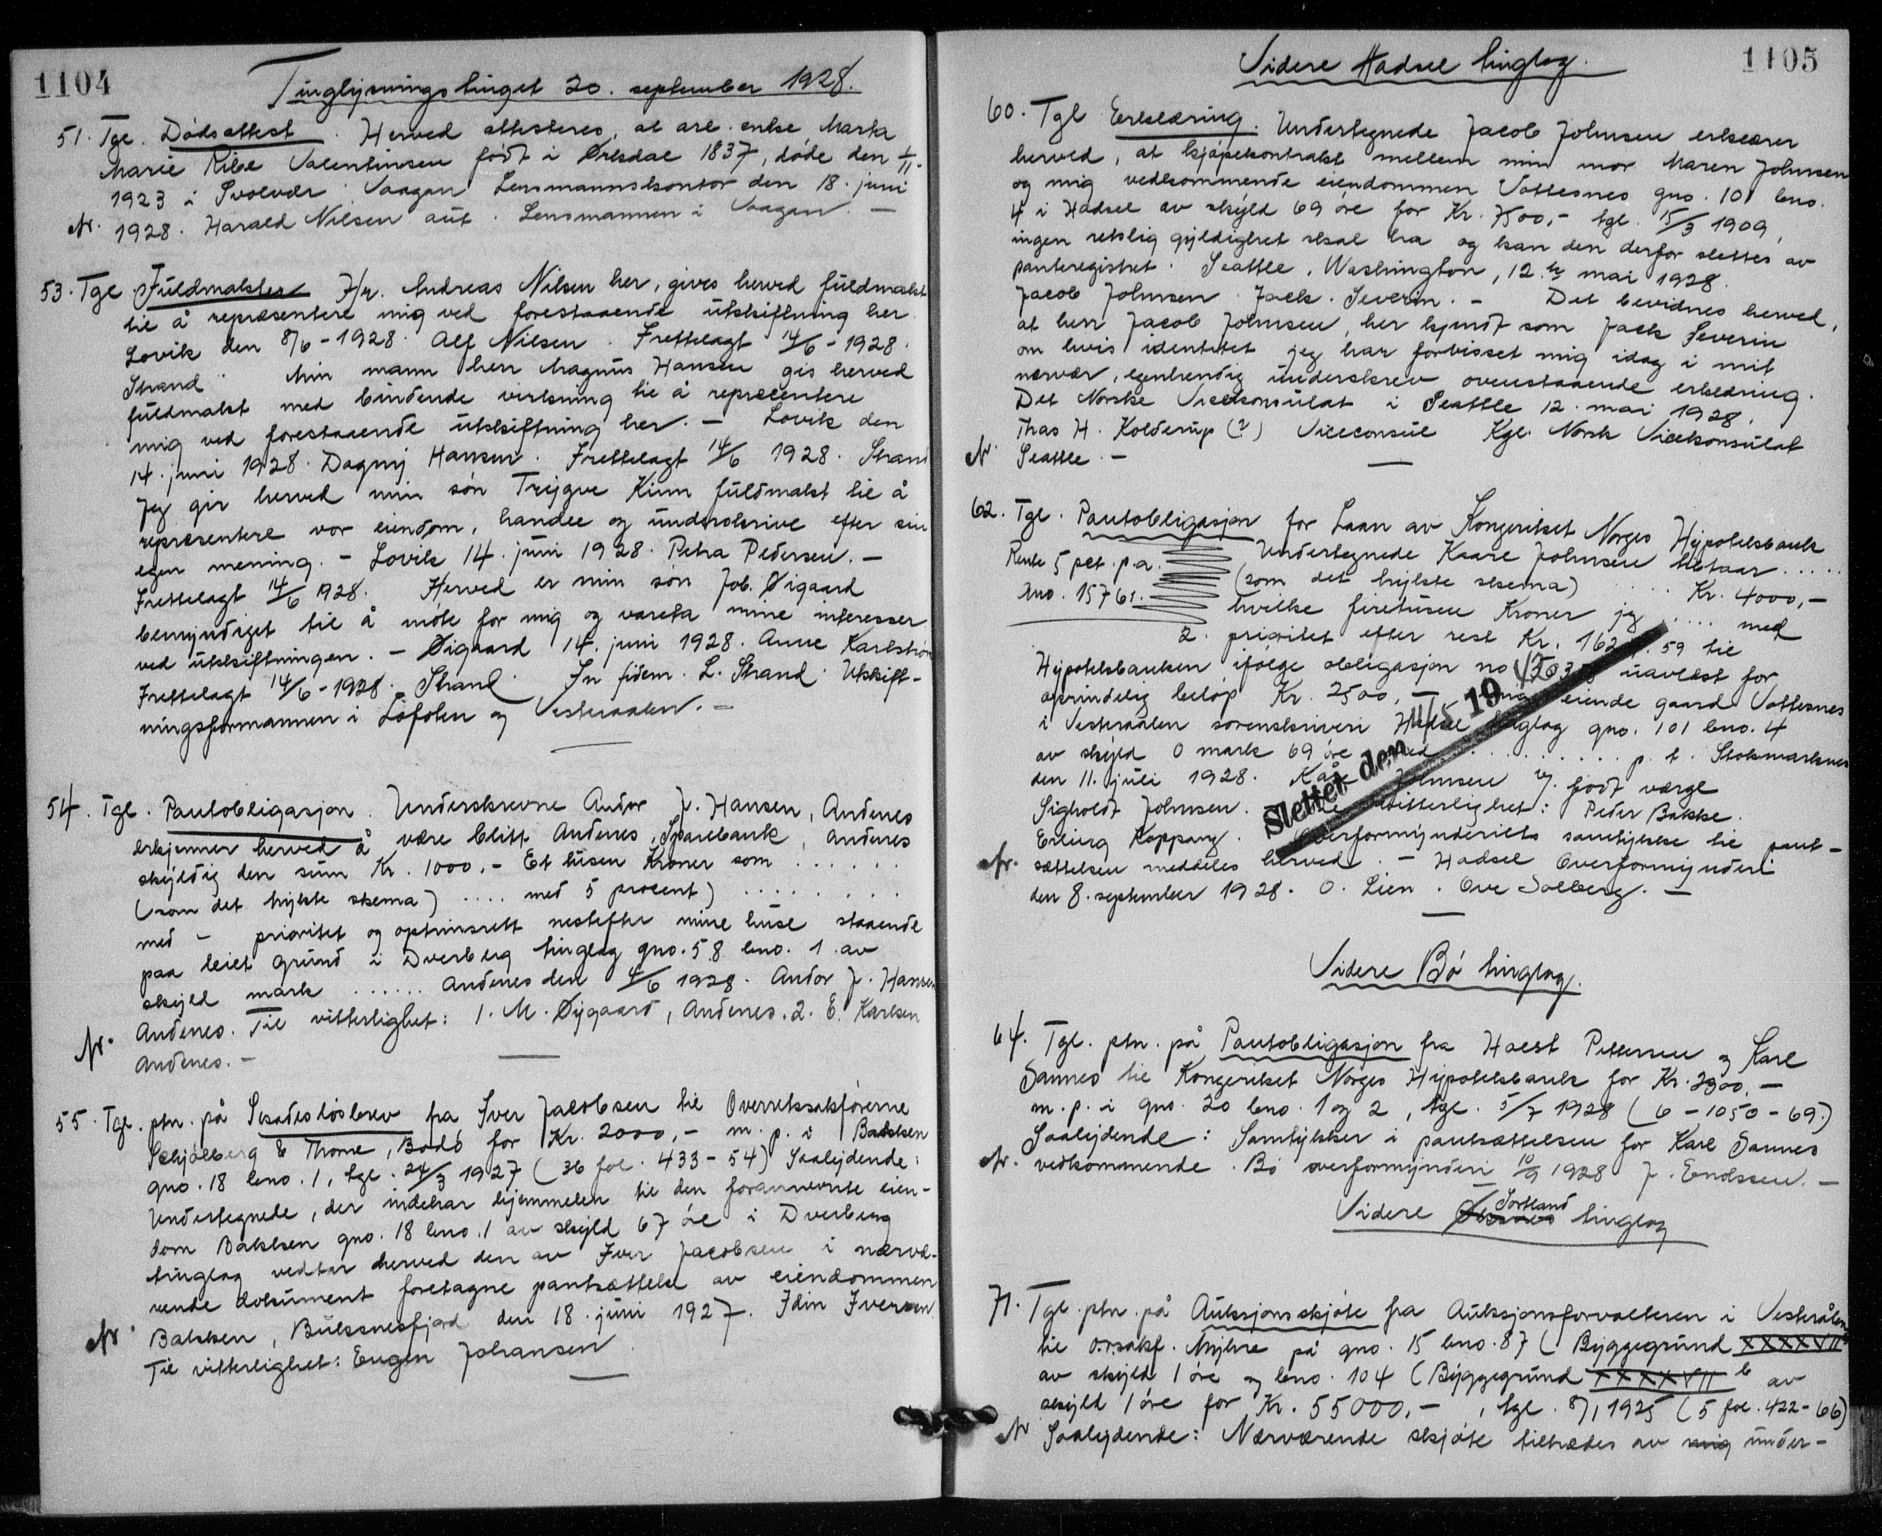 1104
Tinglysningstinget 20. september 1928.
51. Tgl. Dødsattest. Herved attesteres, at arb. enke Marta
Marie Ribe Valentinsen født i Ørksdal 1837, døde den 1/11-
1923 i Svolvær. Vaagan Lensmannskontor den 18. juni
Nr. 1928. Harald Nilsen aut. Lensmannen i Vaagan. —
53. Tgl. Fuldmakter Hr. Andreas Nilsen her, gives herved fuldmakt
til å repræsentere mig ved forestaaende utskiftning her.
Lovik den 8/6-1928. Alf Nilsen. Frettelagt 14/6-1928.
Strand. Min mann herr Magnus Hansen gis herved
fuldmakt med bindende virkning til å repræcentere
mig ved forestaaende utskiftning her. — Lovik den
14. juni 1928. Dagny Hansen. Frettelagt 14/6 1928. Strand
Jeg gir herved min sön Trygve Kinn fuldmakt til å
repræsentere vor eiendom, handle og underskrive efter sin
egen mening. — Lovik 14. juni 1928. Petra Pedersen. —
Frettelagt 14/6 1928. Herved er min sön Job. Øigaard
bemyndiget til å møte for mig og vareta mine interesser
ved utskiftningen. — Øigaard 14. juni 1928. Anne Karlström
Frettelagt 14/6-1928. Strand. In fidem. L. Strand. Utskift-
ningsformannen i Lofoten og Vesteraalen. —
54. Tgl. Pantobligasjon. Underskrevne Andor J. Hansen, Andenes
erkjenner herved å være blitt Andenes Sparebank, Andenes
skyldig den sum Kr. 1000.- Et tusen Kroner som . . . . . .
(som det trykte skema) .... med 5 procent) . . . . . . .
med - prioritet og optrinsrett nestefter mine huse staaende
paa leiet grund i Dverberg tinglag gno. 58 bno. 1 av
skyld mark ...... Andenes den 4/6 1928. Andor J. Hansen
Andenes. Til vitterlighet: 1. M. Øygaard, Andenes. 2. E. Karlsen
Nr. Andenes. —
55. Tgl. ptn. på Skadesløsbrev fra Iver Jacobsen til Overrettssakförerne
Schjölberg & Thorne, Bodö for Kr. 2000,- m. p. i Bakken
gno. 18 bno. 1, tgl. 24/3 1927 (36 fol. 433-54) Saalydende:
Undertegnede, der indehar hjemmelen til den forannevnte eien-
dom Bakken gno. 18 bno. 1 av skyld 67 öre i Dverberg
tinglag vedtar herved den av Iver Jacobsen i nærvæ-
rende dokument foretagne pantsættelse av eiendommen
Nr. Bakken, Buksnesfjord den 18. juni 1927. Idin Iversen
Til vitterlighet: Eugen Johansen
1105
Videre Hadsel tinglag.
60. Tgl Erklæring. Undertegnede Jacob Johnsen erklærer
herved, at kjöpekontrakt mellem min mor Maren Johnsen
og mig vedkommende eiendommen Vottesnes gno. 101 bno.
4 i Hadsel av skyld 69 öre for Kr. 7500,- tgl. 15/3 1909,
ingen retslig gyldighet skal ha og kan den derfor slettes av
panteregistret. Seattle, Washington, 12. te mai 1928.
Jacob Johnsen. Jack. Severin. — Det bevidnes herved,
at herr Jacob Johnsen, her kjendt som Jack Severin
om hvis identitet jeg har forvisset mig idag i mit
nærvær, egenhendig underskrev ovenstaaende erklæring.
Det Norske Vicekonsulat i Seattle 12. mai 1928.
Thos H. Kolderup (?) Viceconsul Kgl. Norsk Vicekonsulat
Nr Seattle. —
62. Tgl. Pantobligasjon for Laan av Kongeriket Norges Hypoteksbank
Rente 5 pct. p.a. Undertegnede Kaare Johnsen tilstaar .....
Lno. 15761. (som det trykte skema) .... Kr. 4000,-
hvilke firetusen Kroner jeg .... med
2. prioritet efter rest Kr. 162 . 59 til
Hypoteksbanken ifölge obligasjon no uavlöst for
oprindelig belöp Kr. 2500,- eiende gaard Vottesnes
i Vesteraalen sorenskriveri Hadsel tinglag gno. 101 bno. 4
av skyld 0 mark 69 öre med . . . . . . . . p. t. Stokmarknes
den 11. juli 1928. Kåre Johnsen Vj. födt værge
Sigholdt Johnsen. Til vitterlighet: Peder Bakke.
Erling Koppang. Overformynderiets samtykke til pant-
Nr. sættelsen meddeles herved. — Hadsel Overformynderi
den 8. september 1928. O. Lien. Ove Solberg. —
Slettet den 11/5 19
Videre Bö tinglag.
64. Tgl. ptn. på Pantobligasjon fra Hoest Pettersen og Karl
Sannes til Kongeriket Norges Hypoteksbank for Kr. 2900,-
m. p. i gno. 20 bno. 1 og 2, tgl. 5/7 1928 (6-1050-69.)
Saalydende: Samtykker i pantsættelsen for Karl Sannes
Nr. vedkommende. Bö overformynderi 10/9 1928 J. Enossen. —
Videre Sortland tinglag
71. Tgl. ptn. på Auksjonsskjöte fra Auksjonsforvalteren i Vesterålen
til o.r.sakf. Myhre på gno. 15 bno. 87 (Byggegrund XXXXVII a
av skyld 1 öre og bno. 104 (Byggegrund XXXXVII b av
skyld 1 öre for Kr. 55000,-, tgl. 8/1 1925 (5 fol. 422-66)
Nr Saalydende: Nærværende skjöte tiltrædes av mig under-